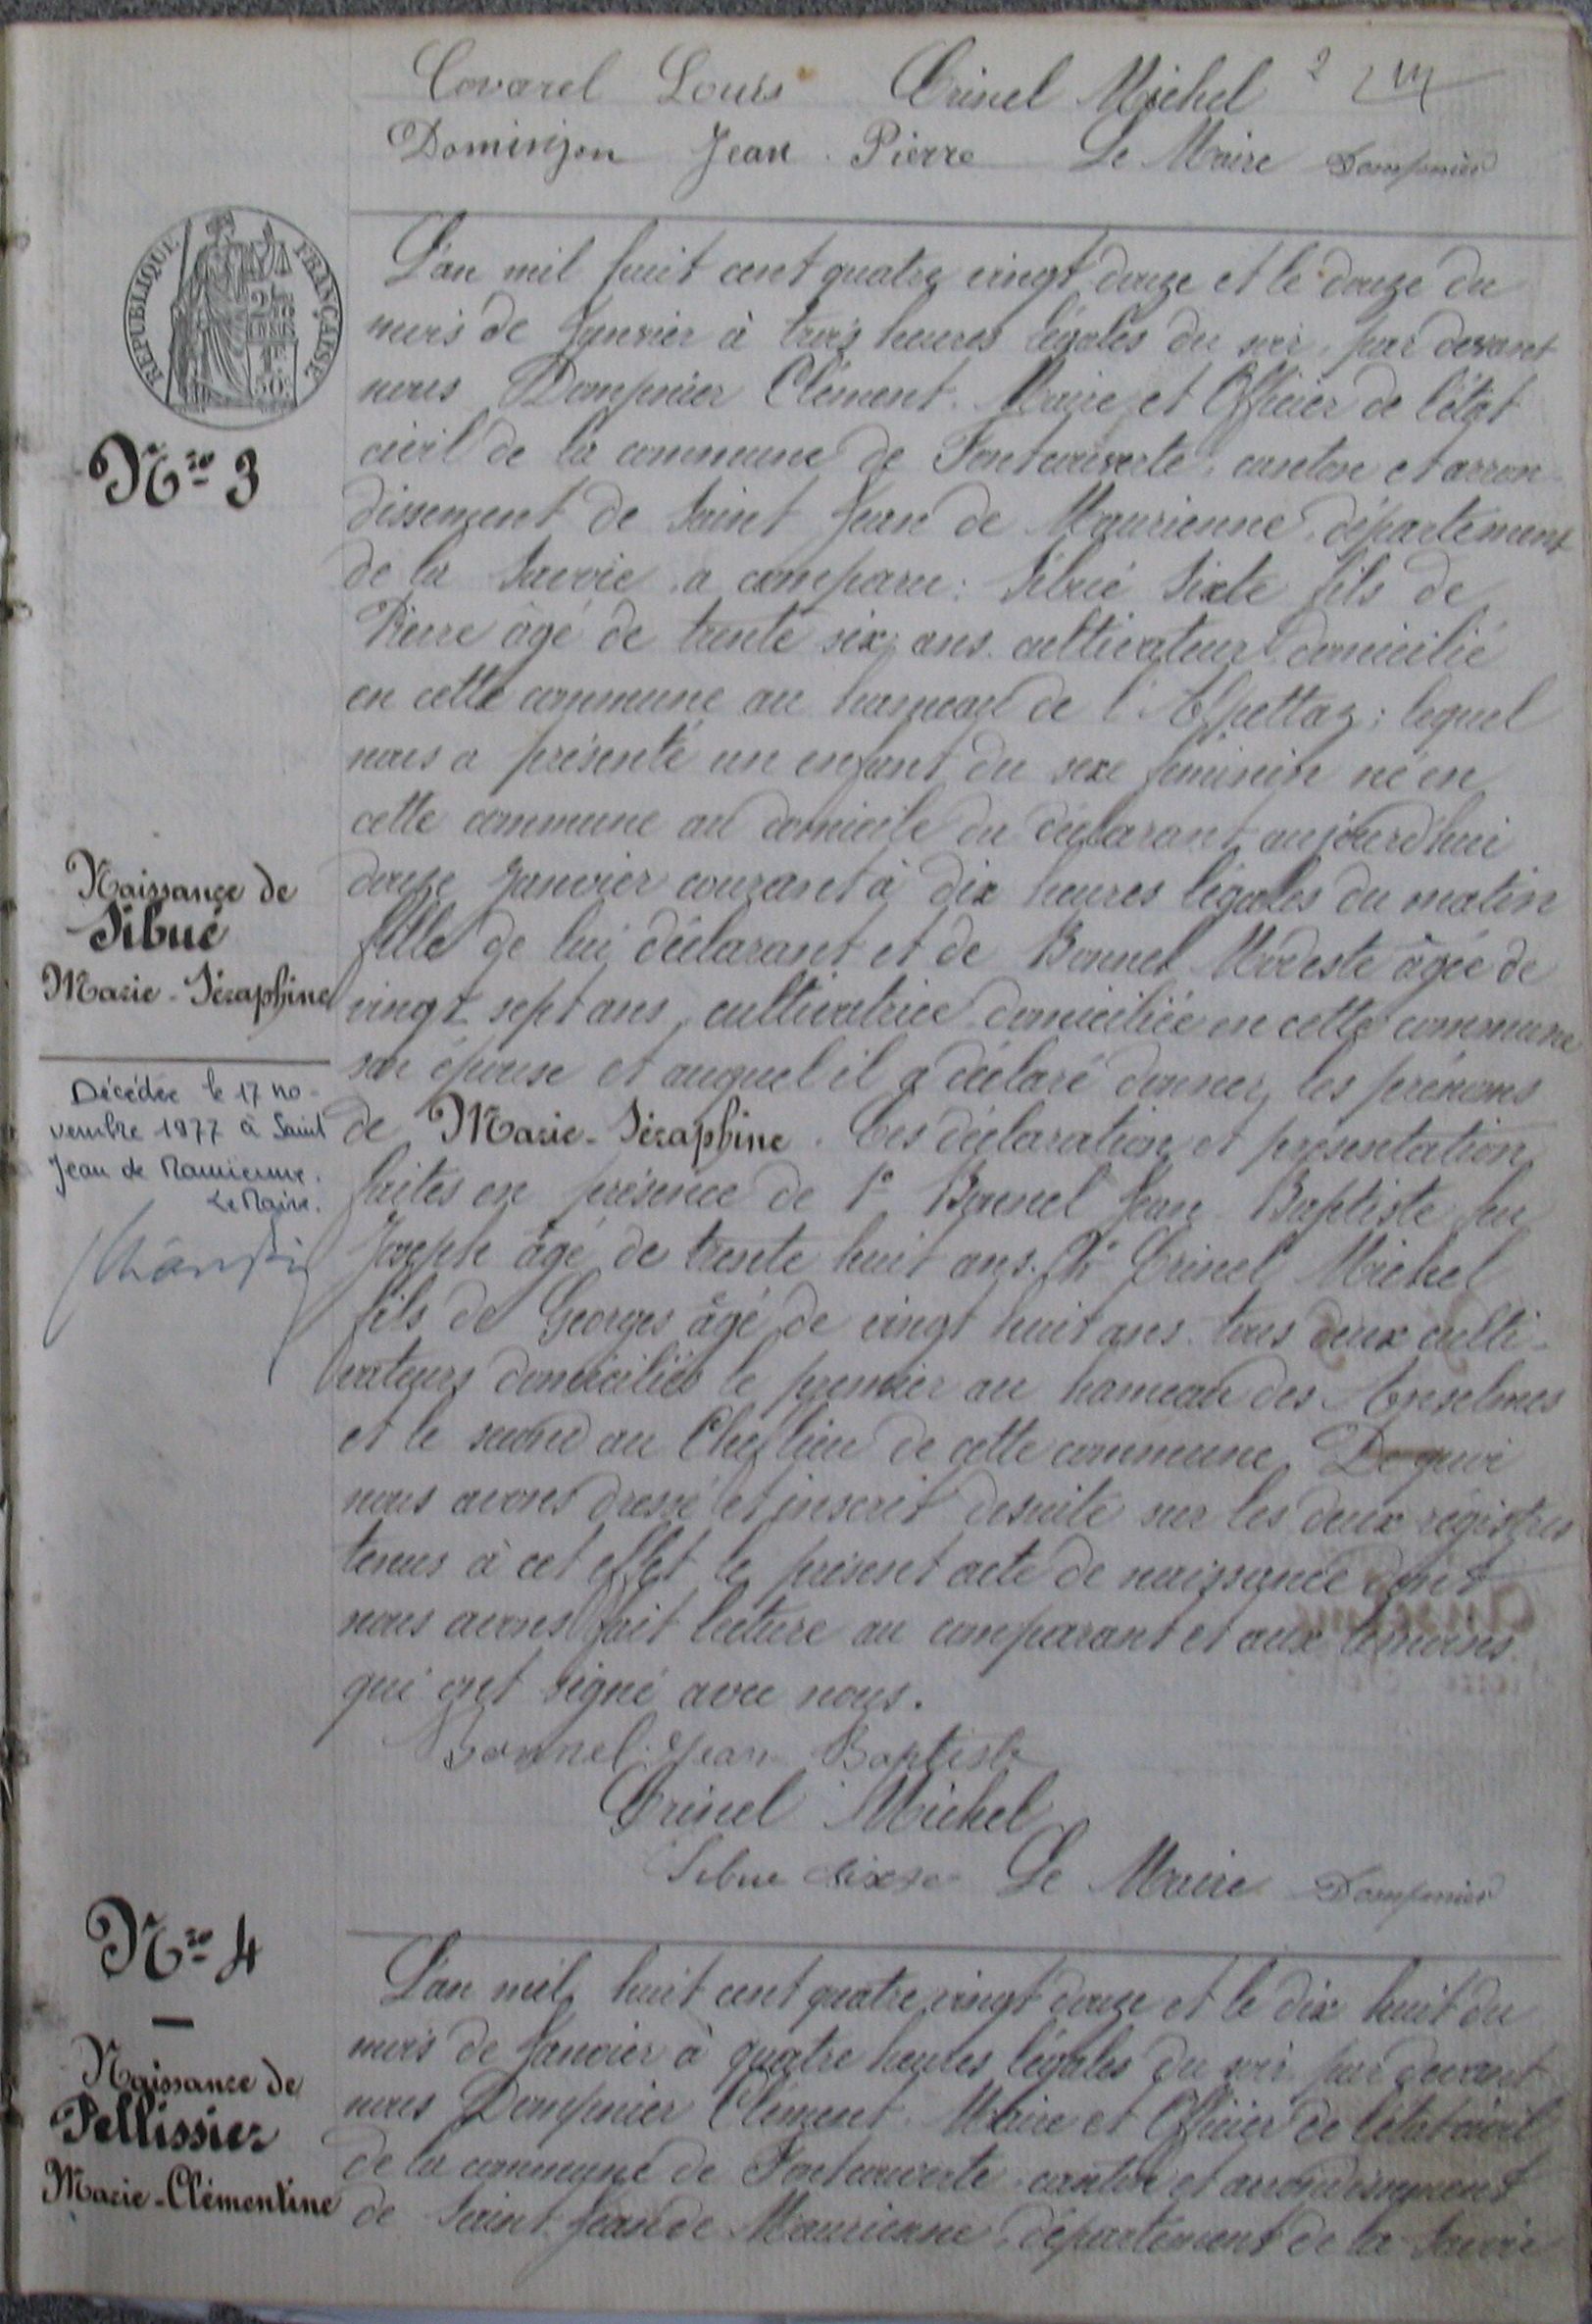 Covarel Louis Crinel Michel 2
Dominjon Jean Pierre Le Maire Dompnier
REPUBLIQUE FRANÇAISE
L'an mil huit cent quatre vingt douze et le douze du
mois de Janvier à trois heures légales du soir, par devant
nous Dompnier Clément Maire et Officier de l'état
Nro 3
civil de la commune de Fontcouverte, canton et arron
dissement de Saint Jean de Maurienne, département
de la Savoie, a comparu: Sibué Sixte fils de
Pierre âgé de trente six ans cultivateur domicilié
en cette commune au hameau de l'Alpettaz; lequel
nous a présenté un enfant du sexe féminin né en
cette commune au domicile du déclarant aujourd'hui
Naissance de
Sibué
Marie-Séraphine
douze Janvier courant à dix heures légales du matin
fille de lui déclarant et de Bonnel Modeste âgée de
vingt sept ans, cultivatrice domiciliée en cette commune
son épouse et auquel il a déclaré donner les prénoms
Décédée le 17 no-
vembre 1977 à Saint
Jean de Maurienne.
Le Maire.
de Marie-Séraphine. Ces déclaration et présentation
faites en présence de 1° Bonnel Jean Baptiste feu
Joseph âgé de trente huit ans. 2° Crinel Michel
fils de Georges âgé de vingt huit ans tous deux culti-
vateurs domiciliés le premier au hameau des Anselmes
et le second au Cheflieu de cette commune. De quoi
nous avons dressé et inscrit desuite sur les deux régistres
tenus à cet effet le présent acte de naissance dont
nous avons fait lecture au comparant et aux témoins
qui ont signé avec nous.
Bonnel Jean Baptiste
Crinel Michel
Sibue Sixte Le Maire Dompnier
Nro 4
Naissance de
Pellissier
Marie-Clémentine
L'an mil huit cent quatre vingt douze et le dix huit du
mois de Janvier à quatre heures légales du soir par devant
nous Dompnier Clément Maire et Officier de l'état civil
de la commune de Fontcouverte, canton et arrondissement
de Saint Jean de Maurienne, département de la Savoie